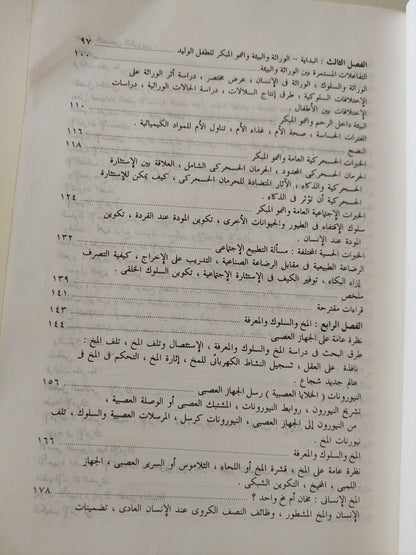 الفصل الثالث : البداية – الوراثة والبيئة والنمو المبكر للطفل الوليد ٩٧
التفاعلات المستمرة بين الوراثة والبيئة ١٠٠
الوراثة والسلوك ، الوراثة فى الإنسان ، عرض مختصر ، دراسة أثر الوراثة على
الإختلافات السلوكية ، طرق إنتاج السلالات ، دراسة الحالات الوراثية ، دراسات
الإختلافات بين الأطفال .
البيئة داخل الرحم والنمو المبكر ١١٠
الفترات الحساسة ، صحة الأم ، غذاء الأم ، تناول الأم للمواد الكيميائية .
النضج ١١٦
الخبرات الحسحركية العامة والنمو المبكر ١١٨
الحرمان الحسحركى المحدود ، الحرمان الحسحركى الشامل ، العلاقة بين الإستثارة
الحسحركية والذكاء ، الآثار المتضادة للحرمان الحسحركى ، كيف يمكن للإستثارة
الحسحركية أن تؤثر فى الذكاء .
الخبرات الإجتماعية العامة والنمو المبكر ١٢٤
سلوك الإقتفاء فى الطيور والحيوانات الأخرى ، تكوين المودة عند القردة ، تكوين
المودة عند الإنسان .
الخبرات الحسية المختلفة : مسألة التطبيع الإجتماعى ١٣٢
الرضاعة الطبيعية فى مقابل الرضاعة الصناعية ، التدريب على الإخراج ، كيفية التصرف
إزاء البكاء ، توفير الكيف فى الإستثارة الإجتماعية ، تكوين السلوك الخلقى .
ملخص ١٣٩
قراءات مقترحة ١٤١
الفصل الرابع : المخ والسلوك والمعرفة ١٤٣
نظرة عامة على الجهاز العصبى ١٤٤
طرق البحث فى دراسة المخ والسلوك والمعرفة ، الإستئصال وتلف المخ ، تلف المخ :
نافذة على العقل ، تسجيل النشاط الكهربائى للمخ ، إثارة المخ ، التحكم فى المخ
عالم جديد شجاع .
النيورونات ( الخلايا العصبية ) رسل الجهاز العصبى ١٥٦
تشريح النيورون ، روابط النيورونات ، المشتبك العصبى أو الوصلة العصبية ،
من النيورون إلى الجهاز العصبى ، النيورونات كرسل ، المرسلات العصبية والسلوك ، تلف
نيورنات المخ .
المخ والسلوك والمعرفة ١٦٦
نظرة عامة على المخ ، قشرة المخ أو اللحاء ، الثلاموس أو السرير العصبى ، الجهاز
اللمبى ، المخيخ ، التكوين الشبكى .
المخ الإنسانى : مخان أم مخ واحد ؟ ١٧٨
الإنسان والمخ المشطور ، وظائف النصف الكروى عند الإنسان العادى ، تضمينات